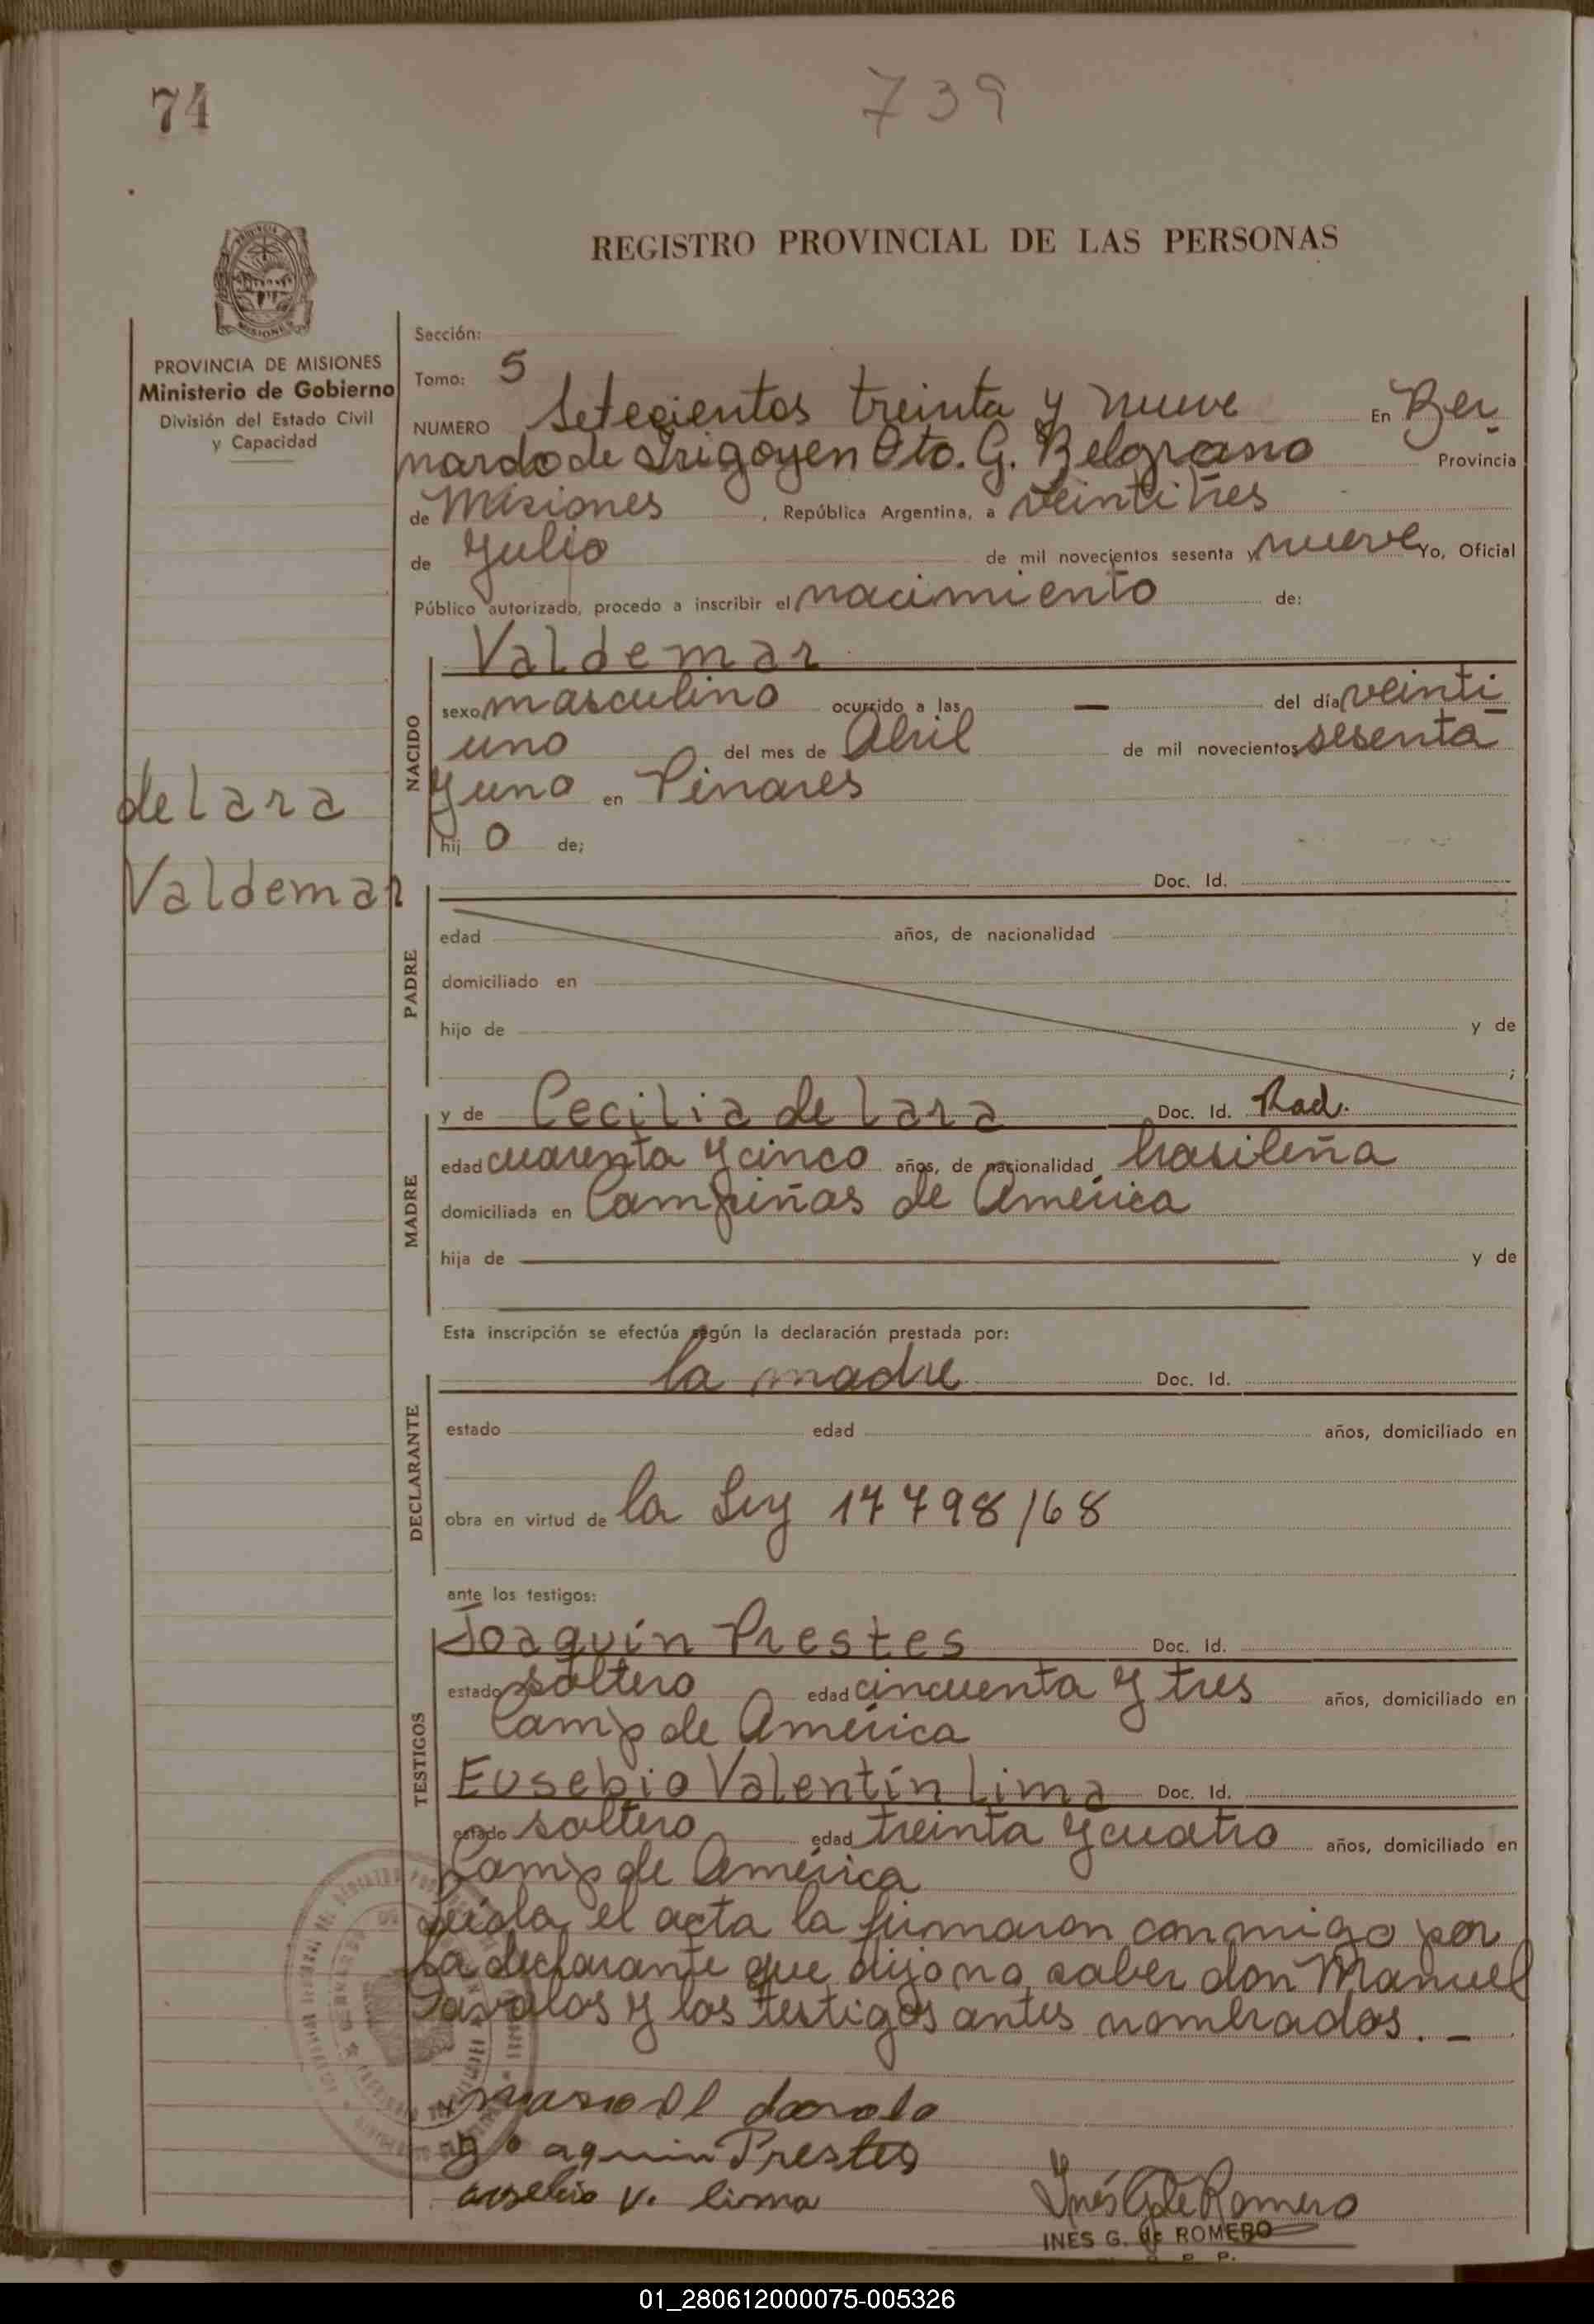 74
739
REGISTRO PROVINCIAL DE LAS PERSONAS
PROVINCIA DE MISIONES
Ministerio de Gobierno
División del Estado Civil
y Capacidad
Sección:
Tomo: 5
NUMERO Setecientos treinta y nueve En Ber
nardo de Irigoyen Dto. G. Belgrano Provincia
de Misiones, República Argentina, a veintitres
de Julio de mil novecientos sesenta y nueve Yo, Oficial
Público autorizado, procedo a inscribir el nacimiento de:
Valdemar
NACIDO
sexo masculino ocurrido a las — del día veinti
uno del mes de Abril de mil novecientos sesenta
y uno en Pinares
hij o de;
de Lara
Valdemar
PADRE
Doc. Id.
edad años, de nacionalidad
domiciliado en
hijo de y de
;
MADRE
y de Cecilia de Lara Doc. Id. Rad.
edad cuarenta y cinco años, de nacionalidad brasileña
domiciliada en Campiñas de América
hija de y de
Esta inscripción se efectúa según la declaración prestada por:
DECLARANTE
la madre Doc. Id.
estado edad años, domiciliado en
obra en virtud de la Ley 17798/68
ante los testigos:
TESTIGOS
Joaquín Prestes Doc. Id.
estado soltero edad cincuenta y tres años, domiciliado en
Camp de América
Eusebio Valentín Lima Doc. Id.
estado soltero edad treinta y cuatro años, domiciliado en
Camp de América
Leída el acta la firmaron conmigo por
la declarante que dijo no saber don Manuel
Davalos y los testigos antes nombrados. —
Prestes
eusebio v. lima
Inés G de Romero
INES G. de ROMERO
O. P. P.
01_280612000075-005326